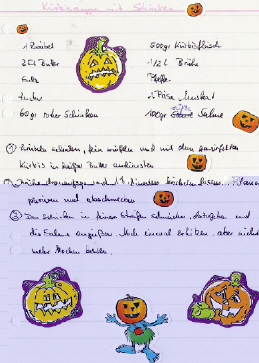 Kürbissuppe mit Schinken
1 Zwiebel 500gr Kürbisfleisch
2 El Butter 1/2 l Brühe
Salz Pfeffer
Zucker 1 Prise Muskat
60 gr roher Schinken 100gr Sahne
① Zwiebeln schälen, fein würfeln und mit dem gewürfelten
Kürbis in heißer Butter andünsten
② Brühe kochen lassen.
pürieren und abschmecken
③ Den Schinken in feine Streifen schneiden, dazugeben und
die Sahne angießen. Noch einmal erhitzen, aber nicht
mehr kochen lassen.